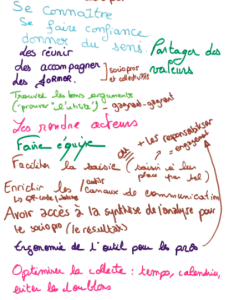 Se connaître
Se faire confiance
donner du sens. Partager des valeurs
des réunir
des accompagner
des former.
socio pro et collectivités
Trouver les bons arguments
(prouver "l'utilité") gagnant-gagnant
Les rendre acteurs
Faire équipe
+ les responsabiliser
Faciliter la saisie (saisir à leur place par tel)
Enrichir les canaux de communication
Avoir accès à la synthèse de l'analyse pour
le sociopro (le résultat)
Ergonomie de l'outil pour les pros
Optimiser la collecte : tempo, calendrier,
éviter les doublons